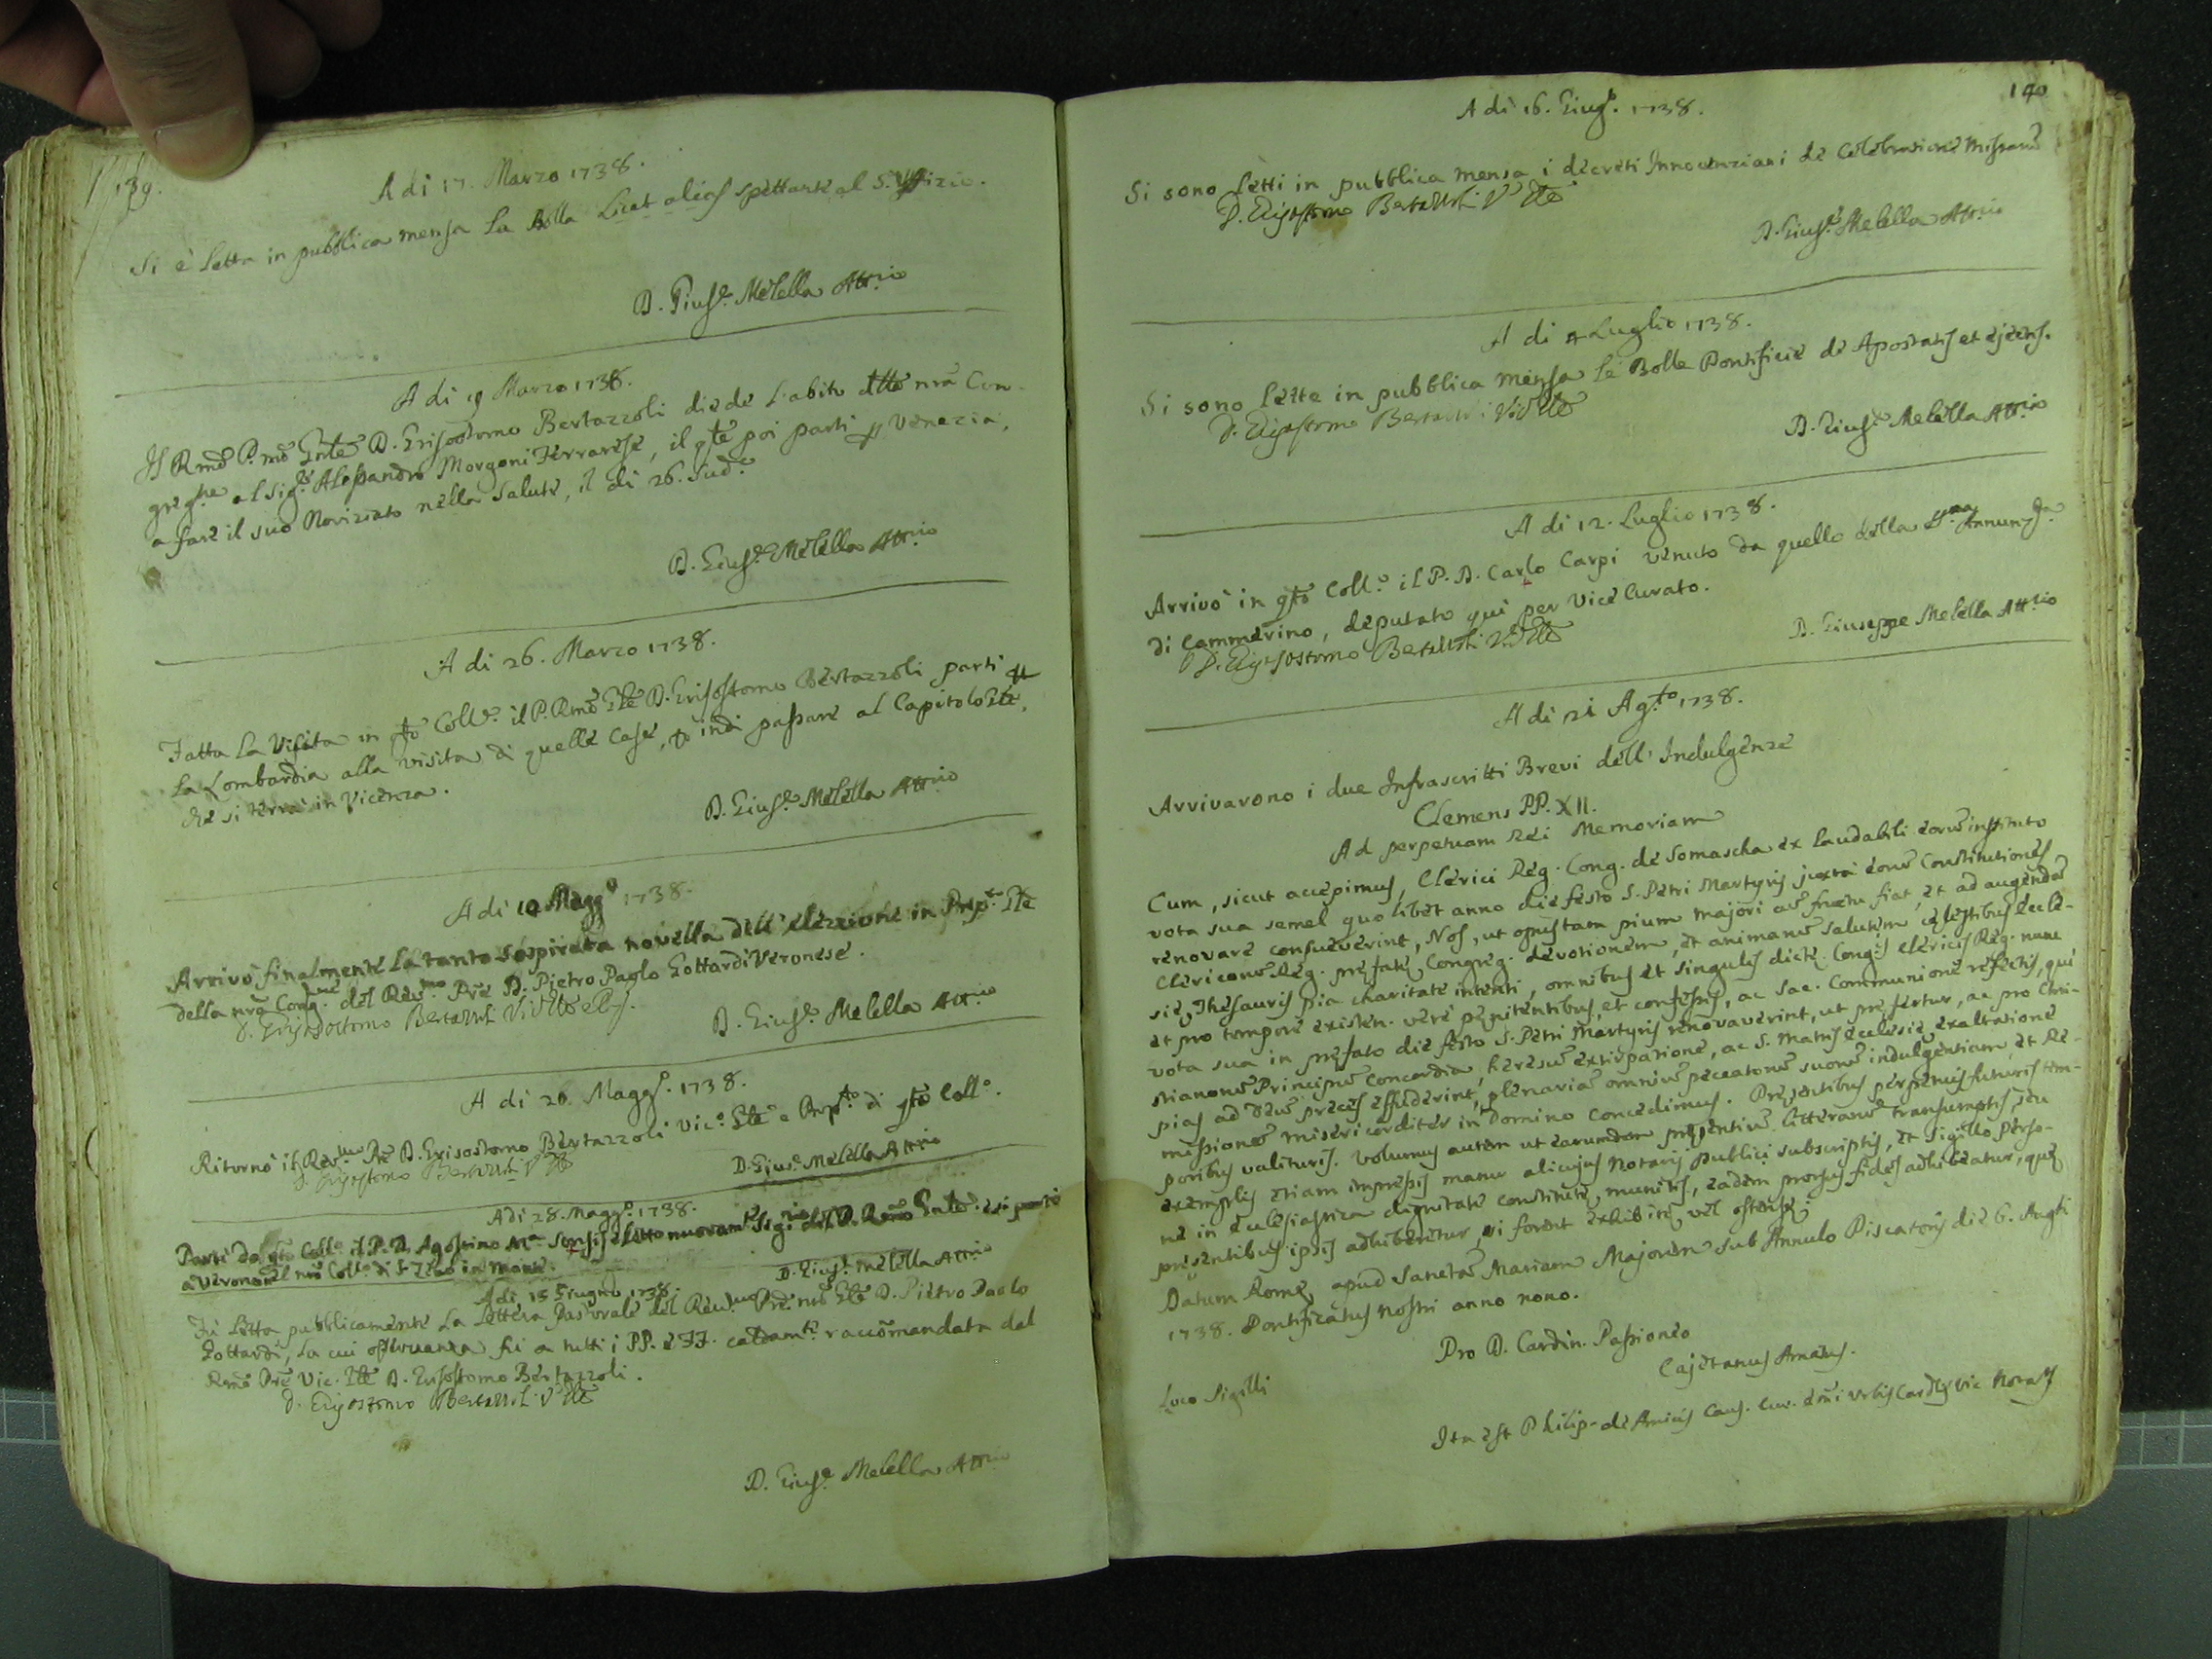 139.
A di 17. Marzo 1738.
Si è letta in pubblica mensa la Bolla Licet alias spettante al S. Uffizio.
D. Gius.e Melella Att.rio
A di 19 Marzo 1738.
Il Rmo P. nro Gnle D. Grisostomo Bertazzoli diede l'abito della nra Con-
greg.ne al Sig.r Alessandro Morgani Ferrarese, il qle poi partì p Venezia,
a fare il suo Noviziato nella Salute, il di 26. sud.o
D. Gius.e Melella Att.rio
A di 26. Marzo 1738.
Fatta la Visita in qto Coll.o il P. Rmo Gle D. Grisostomo Bertazzoli partì p
la Lombardia alla visita di quelle Case, p indi passare al Capitolo Gle,
che si terrà in Vicenza.
D. Gius.e Melella Att.rio
A di 10 Magg.o 1738.
Arrivò finalmente la tanto sospirata novella dell'elezzione in Prep.to Gle
della nra Cong.ne del Rev.mo Pre D. Pietro Paolo Gottardi Veronese.
D. Grisostomo Bertazzoli
D. Gius.e Melella Att.rio
A di 26. Magg.o 1738.
Ritornò il Rev.mo Pre D. Grisostomo Bertazzoli Vic.o Gle e Prep.to di qto Coll.o.
D. Grisostomo Bertazzoli V. Gle
D. Gius.e Melella Att.rio
A di 28. Magg.o 1738.
Partì da qto Coll.o il P. D. Agostino M.a
a Verona nel nro Coll.o di S. Zeno in Monte.
D. Gius.e Melella Att.rio
A di 15 Giugno 1738.
Fu letta pubblicamente la Lettera Pastorale del Rev.mo Pre nro Gle D. Pietro Paolo
Gottardi, la cui osservanza fu a tutti i PP. e FF. caldam.te raccomandata dal
Rmo Pre Vic. Gle D. Grisostomo Bertazzoli.
D. Grisostomo Bertazzoli V. Gle
D. Gius.e Melella Att.rio
140
A di 16. Giug.o 1738.
Si sono letti in pubblica mensa i decreti Innocenziani de Celebratione Missarū
D. Grisostomo Bertazzoli V. Gle
D. Gius.e Melella Att.rio
A di 4 Luglio 1738.
Si sono lette in pubblica mensa le Bolle Pontificie de Apostatis et ejectis.
D. Grisostomo Bertazzoli V. Gle
D. Gius.e Melella Att.rio
A di 12. Luglio 1738.
Arrivò in qto Coll.o il P. D. Carlo Carpi venuto da quello della Annunz.ta
di Cammerino, deputato qui per Vice Curato.
D. Grisostomo Bertazzoli V. Gle
D. Giuseppe Melella Att.rio
A di 21 Ag.to 1738.
Arrivarono i due Infrascritti Brevi dell'Indulgenze
Clemens PP. XII.
Ad perpetuam Rei Memoriam
Cum, sicut accepimus, Clerici Reg. Cong. de Somascha ex laudabili eorū instituto
vota sua semel quolibet anno die festo S. Petri Martyris juxta eorū Constitutiones
renovare consueverint, Nos, ut opus tam pium majori cū fructu fiat, et ad augendā
Clericorū Reg. præfatę Congreg. devotionem, et animarū salutem cęlestibus Eccle-
się Thesauris pia charitate intenti, omnibus et singulis dictę Cong.is Clericis Reg. nunc
et pro tempore existen. vere pęnitentibus, et confessis, ac Sac. Communione refectis, qui
vota sua in pręfato die festo S. Petri Martyris renovaverint, ut pręfertur, ac pro Chri-
stianorū Principū Concordia, heresū extirpatione, ac S. Matris Ecclesię exaltatione
pias ad Deū preces effuderint, plenariā omniū peccatorū suorū indulgentiam, et Re-
missionē misericorditer in Domino concedimus. Pręsentibus perpetuis futuris tem-
poribus valituris. Volumus autem ut earumdem pręsentiū litterarū transumptis, seu
exemplis etiam impressis manu alicujus Notarij publici subscriptis, et sigillo perso-
nę in Ecclesiastica dignitate constitutę munitis, eadem prorsus fides adhibeatur, quę
pręsentibus ipsis adhiberetur, si forent exhibitę, vel ostensę.
Datum Romę apud Sanctā Mariam Majorem sub Annulo Piscatoris die 6. Augti
1738. Pontificatus nostri anno nono.
Pro D. Cardin. Passioneo
Cajetanus Amatus.
Loco Sigilli
Ita est Philip. de Amicis